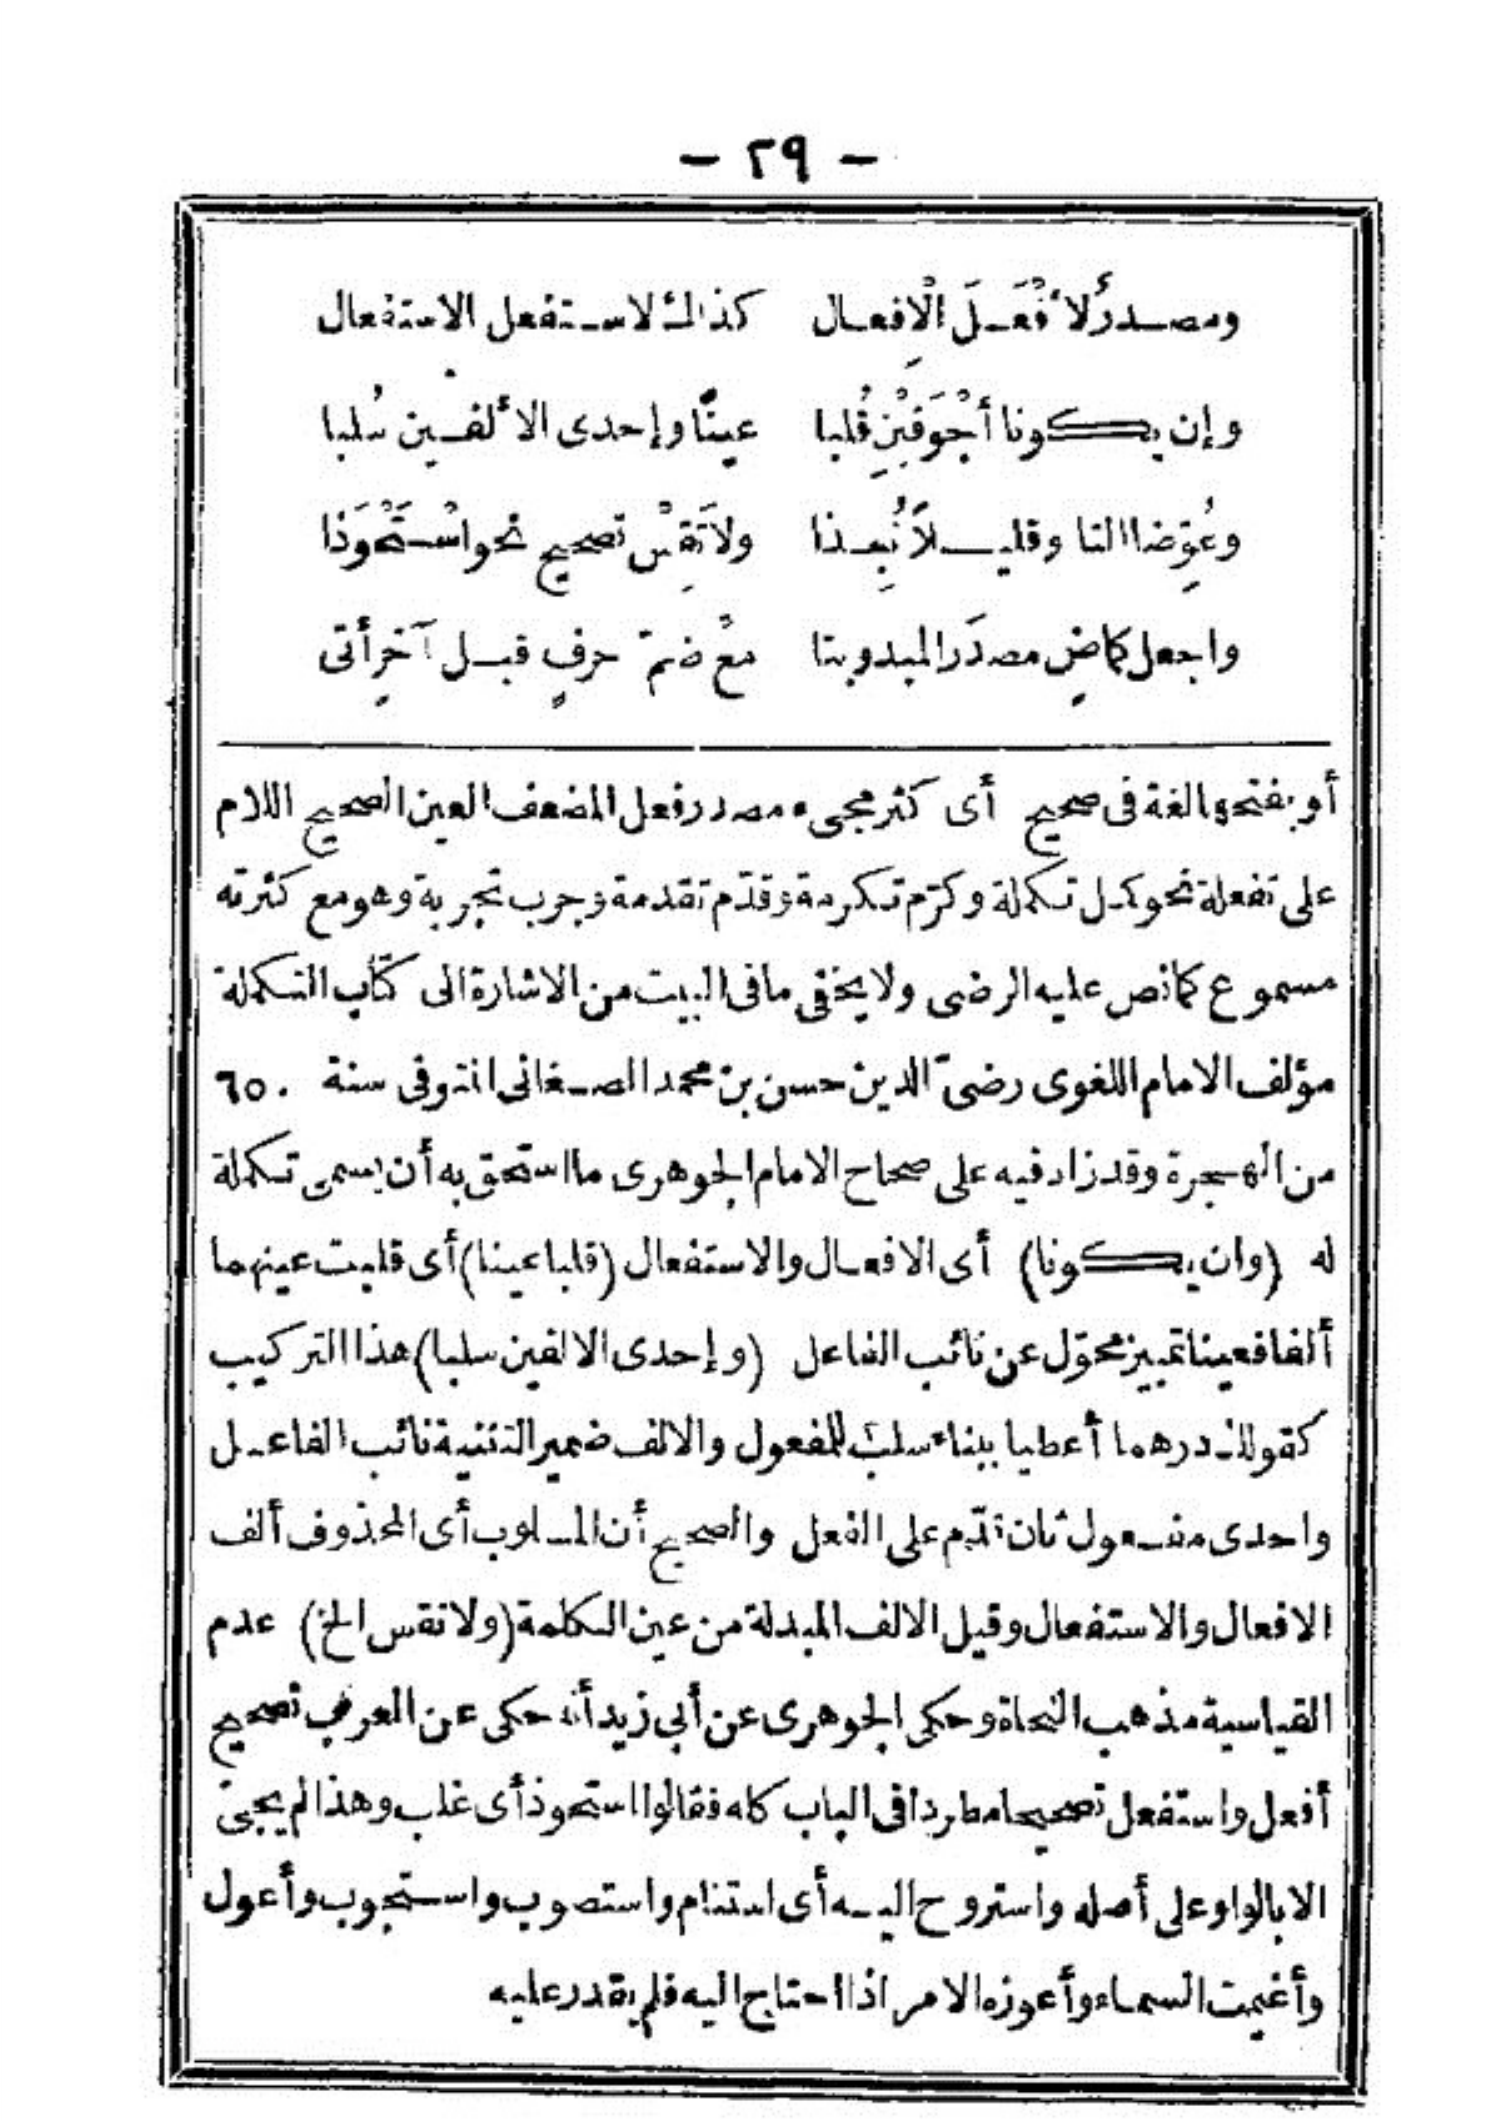 - ٢٩ -
ومصدرُ لأَفْعَلَ الْإِفعال كذالك لاستفعل الاستفعال
وإن يكونا أَجْوَفَيْنِ قُلبا عينًا وإحدى الألفين سُلبا
وعُوِّضا التا وقليلاً نُبِذا ولا تَقِسْ تصحيح نحو اسْتَحْوَذا
واجعل كماضٍ مصدَر المبدو بتا معْ ضمّ حرفٍ قبل آخرٍ أتى
أو بفتح مبالغة فى صحيح أى كثر مجىء مصدر فعل المضعف العين الصحيح اللام
على تفعلة نحو كمل تكملة وكرّم تكرمة وقدّم تقدمة وجرب تجربة وهو مع كثرته
مسموع كما نص عليه الرضى ولا يخفى ما فى البيت من الاشارة الى كتاب التكملة
مؤلف الامام اللغوى رضىّ الدين حسن بن محمد الصغانى المتوفى سنة ٦٥٠
من الهجرة وقد زاد فيه على صحاح الامام الجوهرى ما استحق به أن يسمى تكملة
له (وان يكونا) أى الافعال والاستفعال (قلبا عينا) أى قلبت عينهما
ألفا فعينا تمييز محوّل عن نائب الفاعل (وإحدى الالفين سلبا) هذا التركيب
كقولك درهما أعطيا ببناء سلب للمفعول والالف ضمير التثنية نائب الفاعل
واحدى مفعول ثان قدّم على الفعل والصحيح أن المسلوب أى المحذوف ألف
الافعال والاستفعال وقيل الالف المبدلة من عين الكلمة (ولا تقس الخ) عدم
القياسية مذهب النحاة وحكى الجوهرى عن أبى زيد أنه حكى عن العرب تصحيح
أفعل واستفعل تصحيحا مطردا فى الباب كله فقالوا استحوذ أى غلب وهذا لم يجئ
الا بالواو على أصله واستروح اليه أى استنام واستصوب واستجوب وأعول
وأغيمت السماء وأعوزه الامر اذا احتاج اليه فلم يقدر عليه